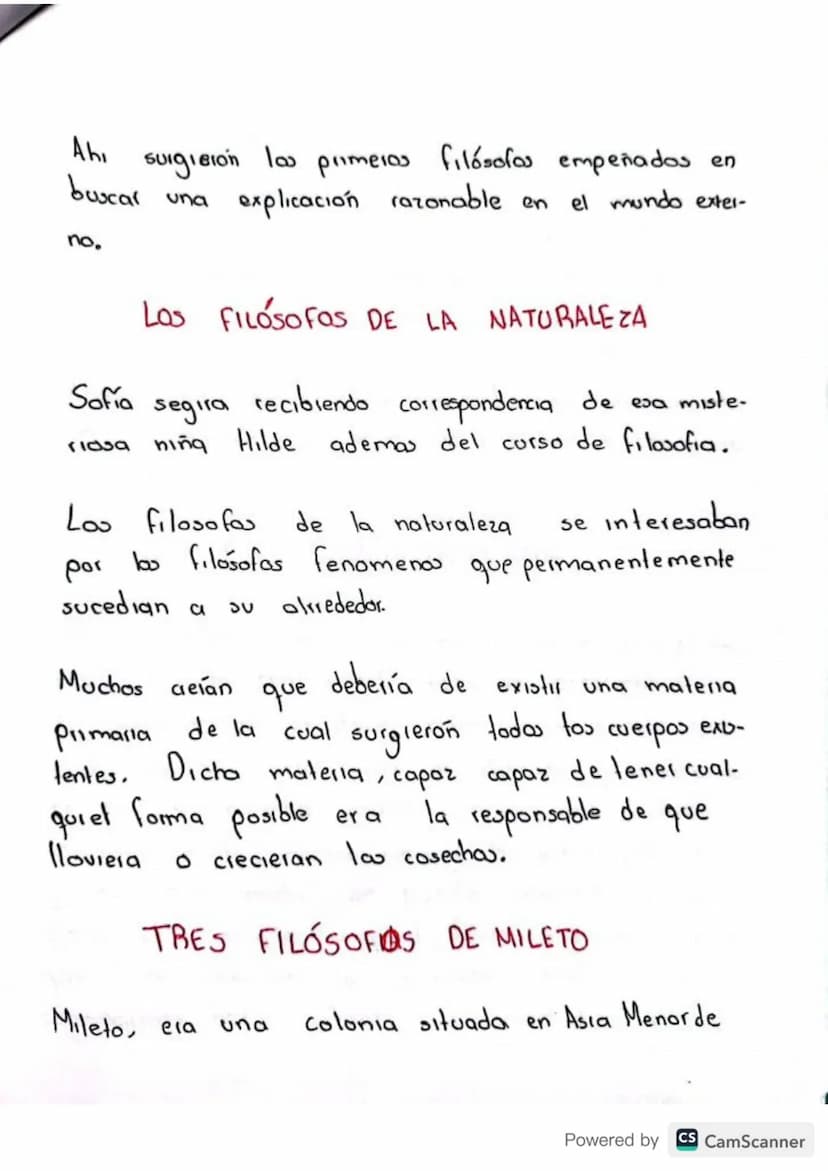 Ahi surgierón los primeros filósofos empeñados en
buscar una explicación razonable en el mundo exter-
no.
Los FILÓSOFOS DE LA NATURALEZA
Sofía segira recibiendo correspondencia de esa miste-
riosa niña Hilde ademas del curso de filosofia.
Los filosofos de la naturaleza se interesaban
por los filósofos fenomenos que permanentemente
sucedian a su alrrededor.
Muchos creían que debería de existir una materia
primaria de la cual surgierón todos los cuerpos exis-
tentes. Dicha materia, capaz capaz de tener cual-
quier forma posible era la responsable de que
lloviera o crecieran las cosechas.
TRES FILÓSOFOS DE MILETO
Mileto, era una colonia situada en Asia Menor de
Powered by CS CamScanner